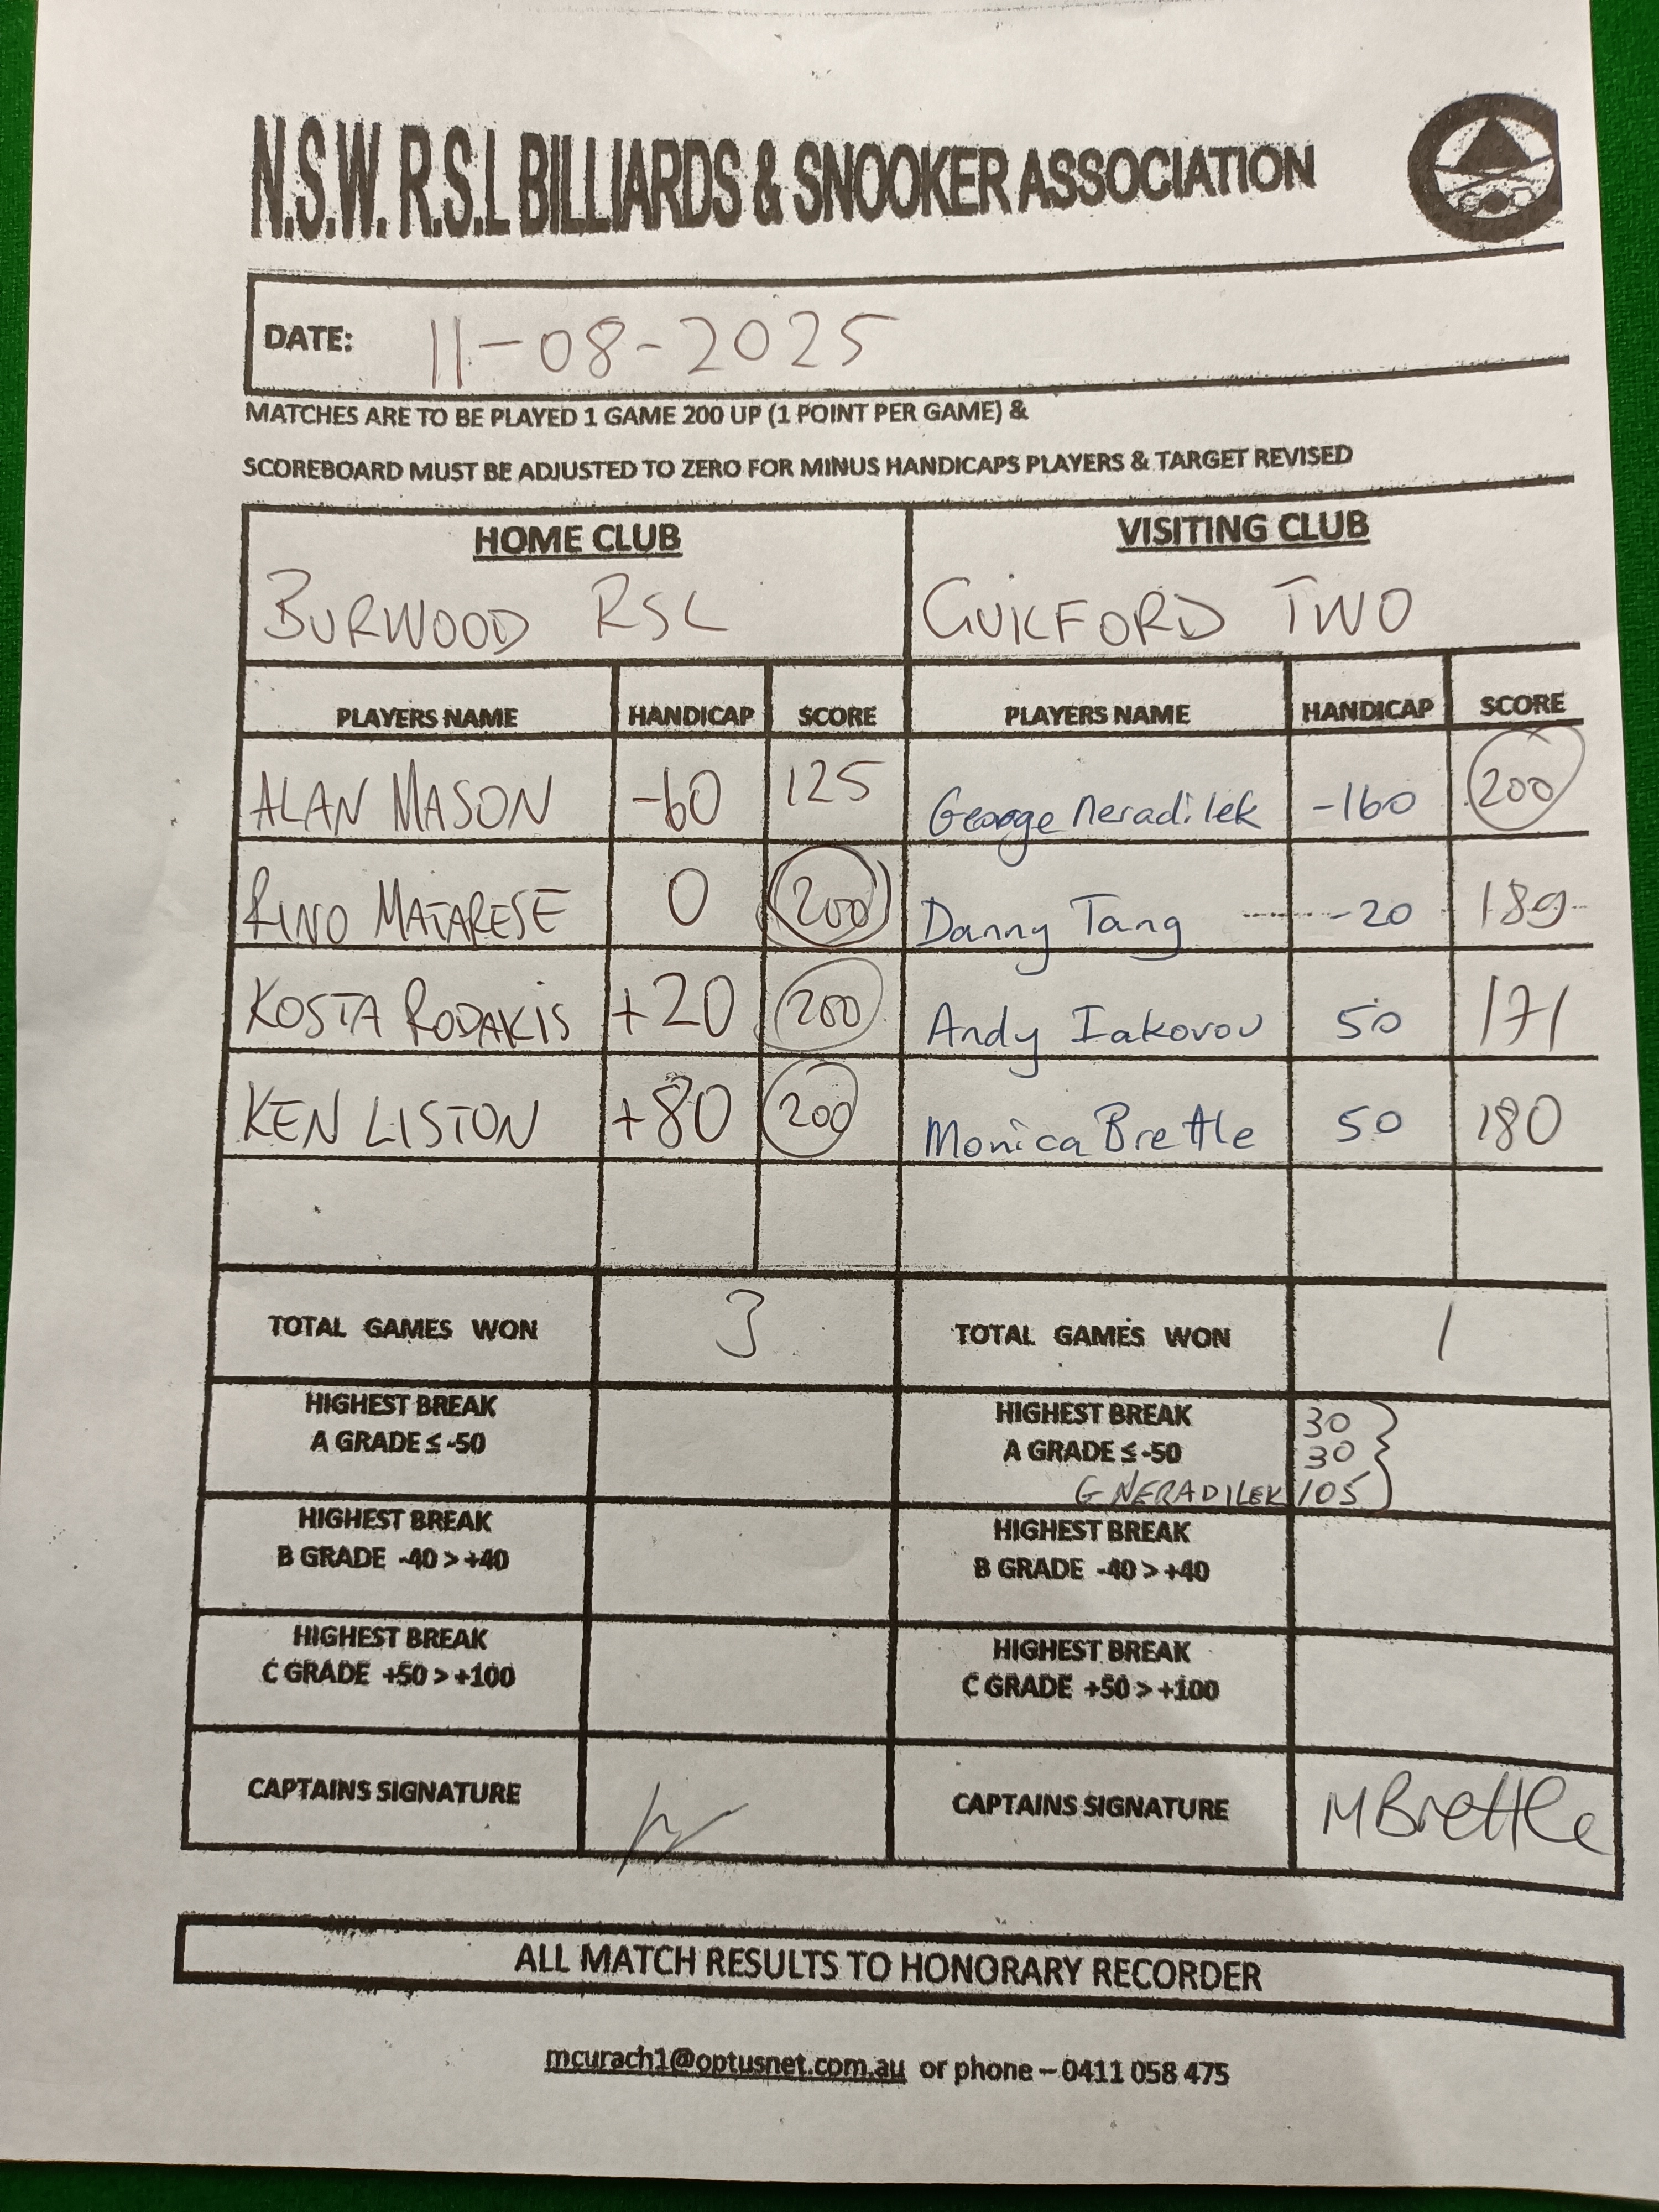 N.S.W. R.S.L BILLIARDS & SNOOKER ASSOCIATION
DATE: 11-08-2025
MATCHES ARE TO BE PLAYED 1 GAME 200 UP (1 POINT PER GAME) &
SCOREBOARD MUST BE ADJUSTED TO ZERO FOR MINUS HANDICAPS PLAYERS & TARGET REVISED
HOME CLUB VISITING CLUB
BURWOOD RSL GUILFORD TWO
PLAYERS NAME HANDICAP SCORE PLAYERS NAME HANDICAP SCORE
ALAN MASON -60 125 George Neradilek -160 200
RINO MATARESE 0 200 Danny Tang -20 189
KOSTA RODAKIS +20 200 Andy Iakovou 50 171
KEN LISTON +80 200 Monica Brettle 50 180
TOTAL GAMES WON 3 TOTAL GAMES WON 1
HIGHEST BREAK HIGHEST BREAK 30
A GRADE ≤ -50 A GRADE ≤ -50 30
G NERADILEK 105
HIGHEST BREAK HIGHEST BREAK
B GRADE -40 > +40 B GRADE -40 > +40
HIGHEST BREAK HIGHEST BREAK
C GRADE +50 > +100 C GRADE +50 > +100
CAPTAINS SIGNATURE CAPTAINS SIGNATURE MBrettle
ALL MATCH RESULTS TO HONORARY RECORDER
mcurach1@optusnet.com.au or phone – 0411 058 475